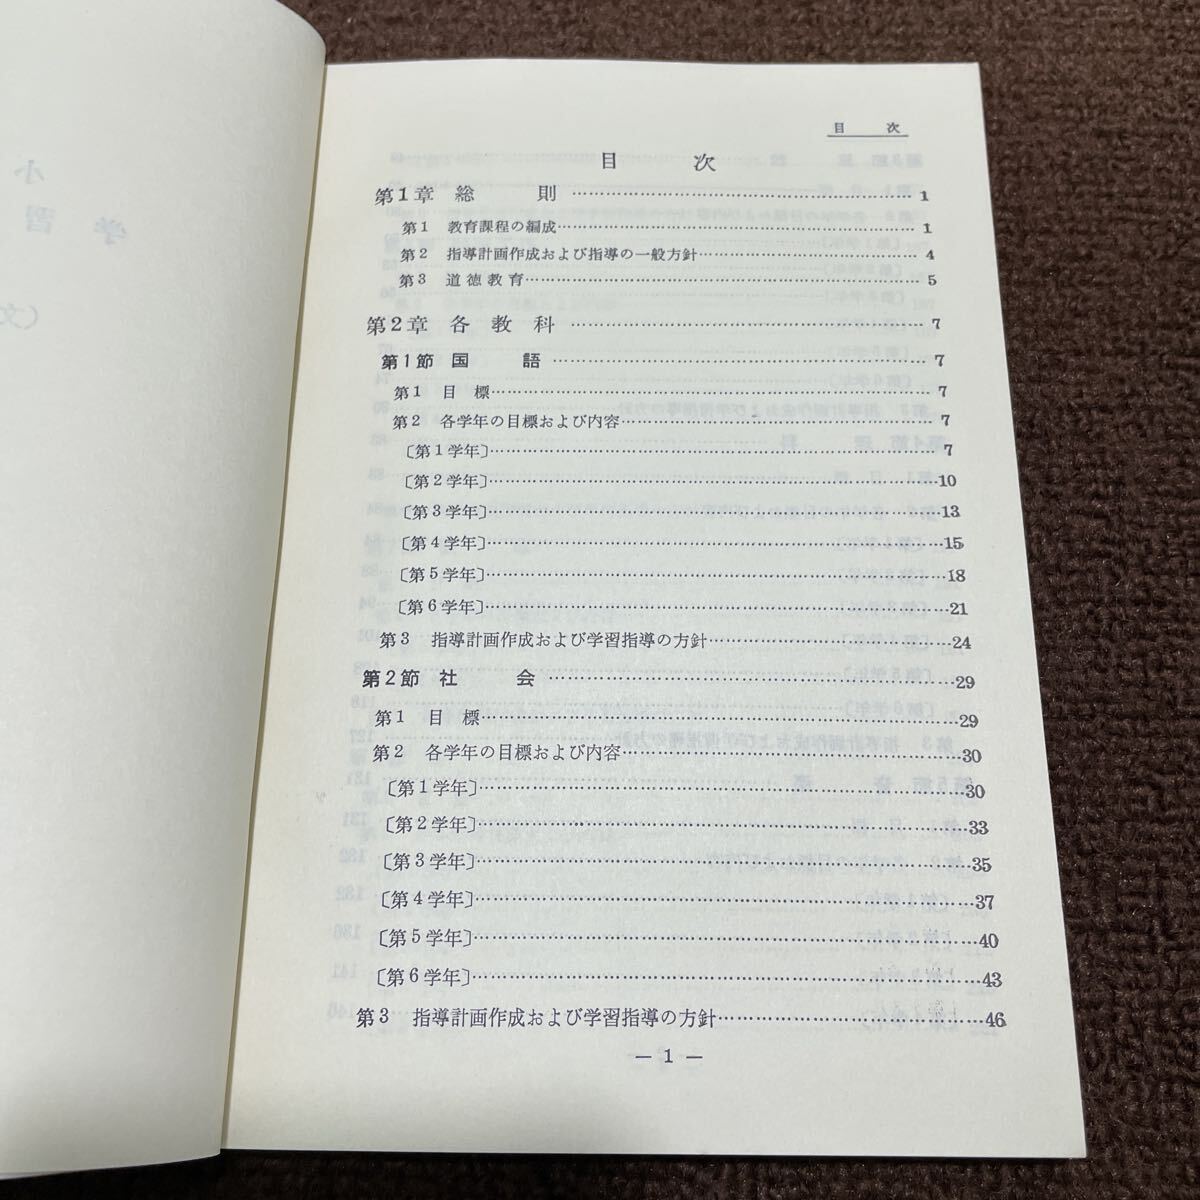 目　次
目　次
第1章 総　則 …… 1
第1 教育課程の編成 …… 1
第2 指導計画作成および指導の一般方針 …… 4
第3 道徳教育 …… 5
第2章 各教科 …… 7
第1節 国　語 …… 7
第1 目標 …… 7
第2 各学年の目標および内容 …… 7
〔第1学年〕 …… 7
〔第2学年〕 …… 10
〔第3学年〕 …… 13
〔第4学年〕 …… 15
〔第5学年〕 …… 18
〔第6学年〕 …… 21
第3 指導計画作成および学習指導の方針 …… 24
第2節 社　会 …… 29
第1 目標 …… 29
第2 各学年の目標および内容 …… 30
〔第1学年〕 …… 30
〔第2学年〕 …… 33
〔第3学年〕 …… 35
〔第4学年〕 …… 37
〔第5学年〕 …… 40
〔第6学年〕 …… 43
第3 指導計画作成および学習指導の方針 …… 46
— 1 —